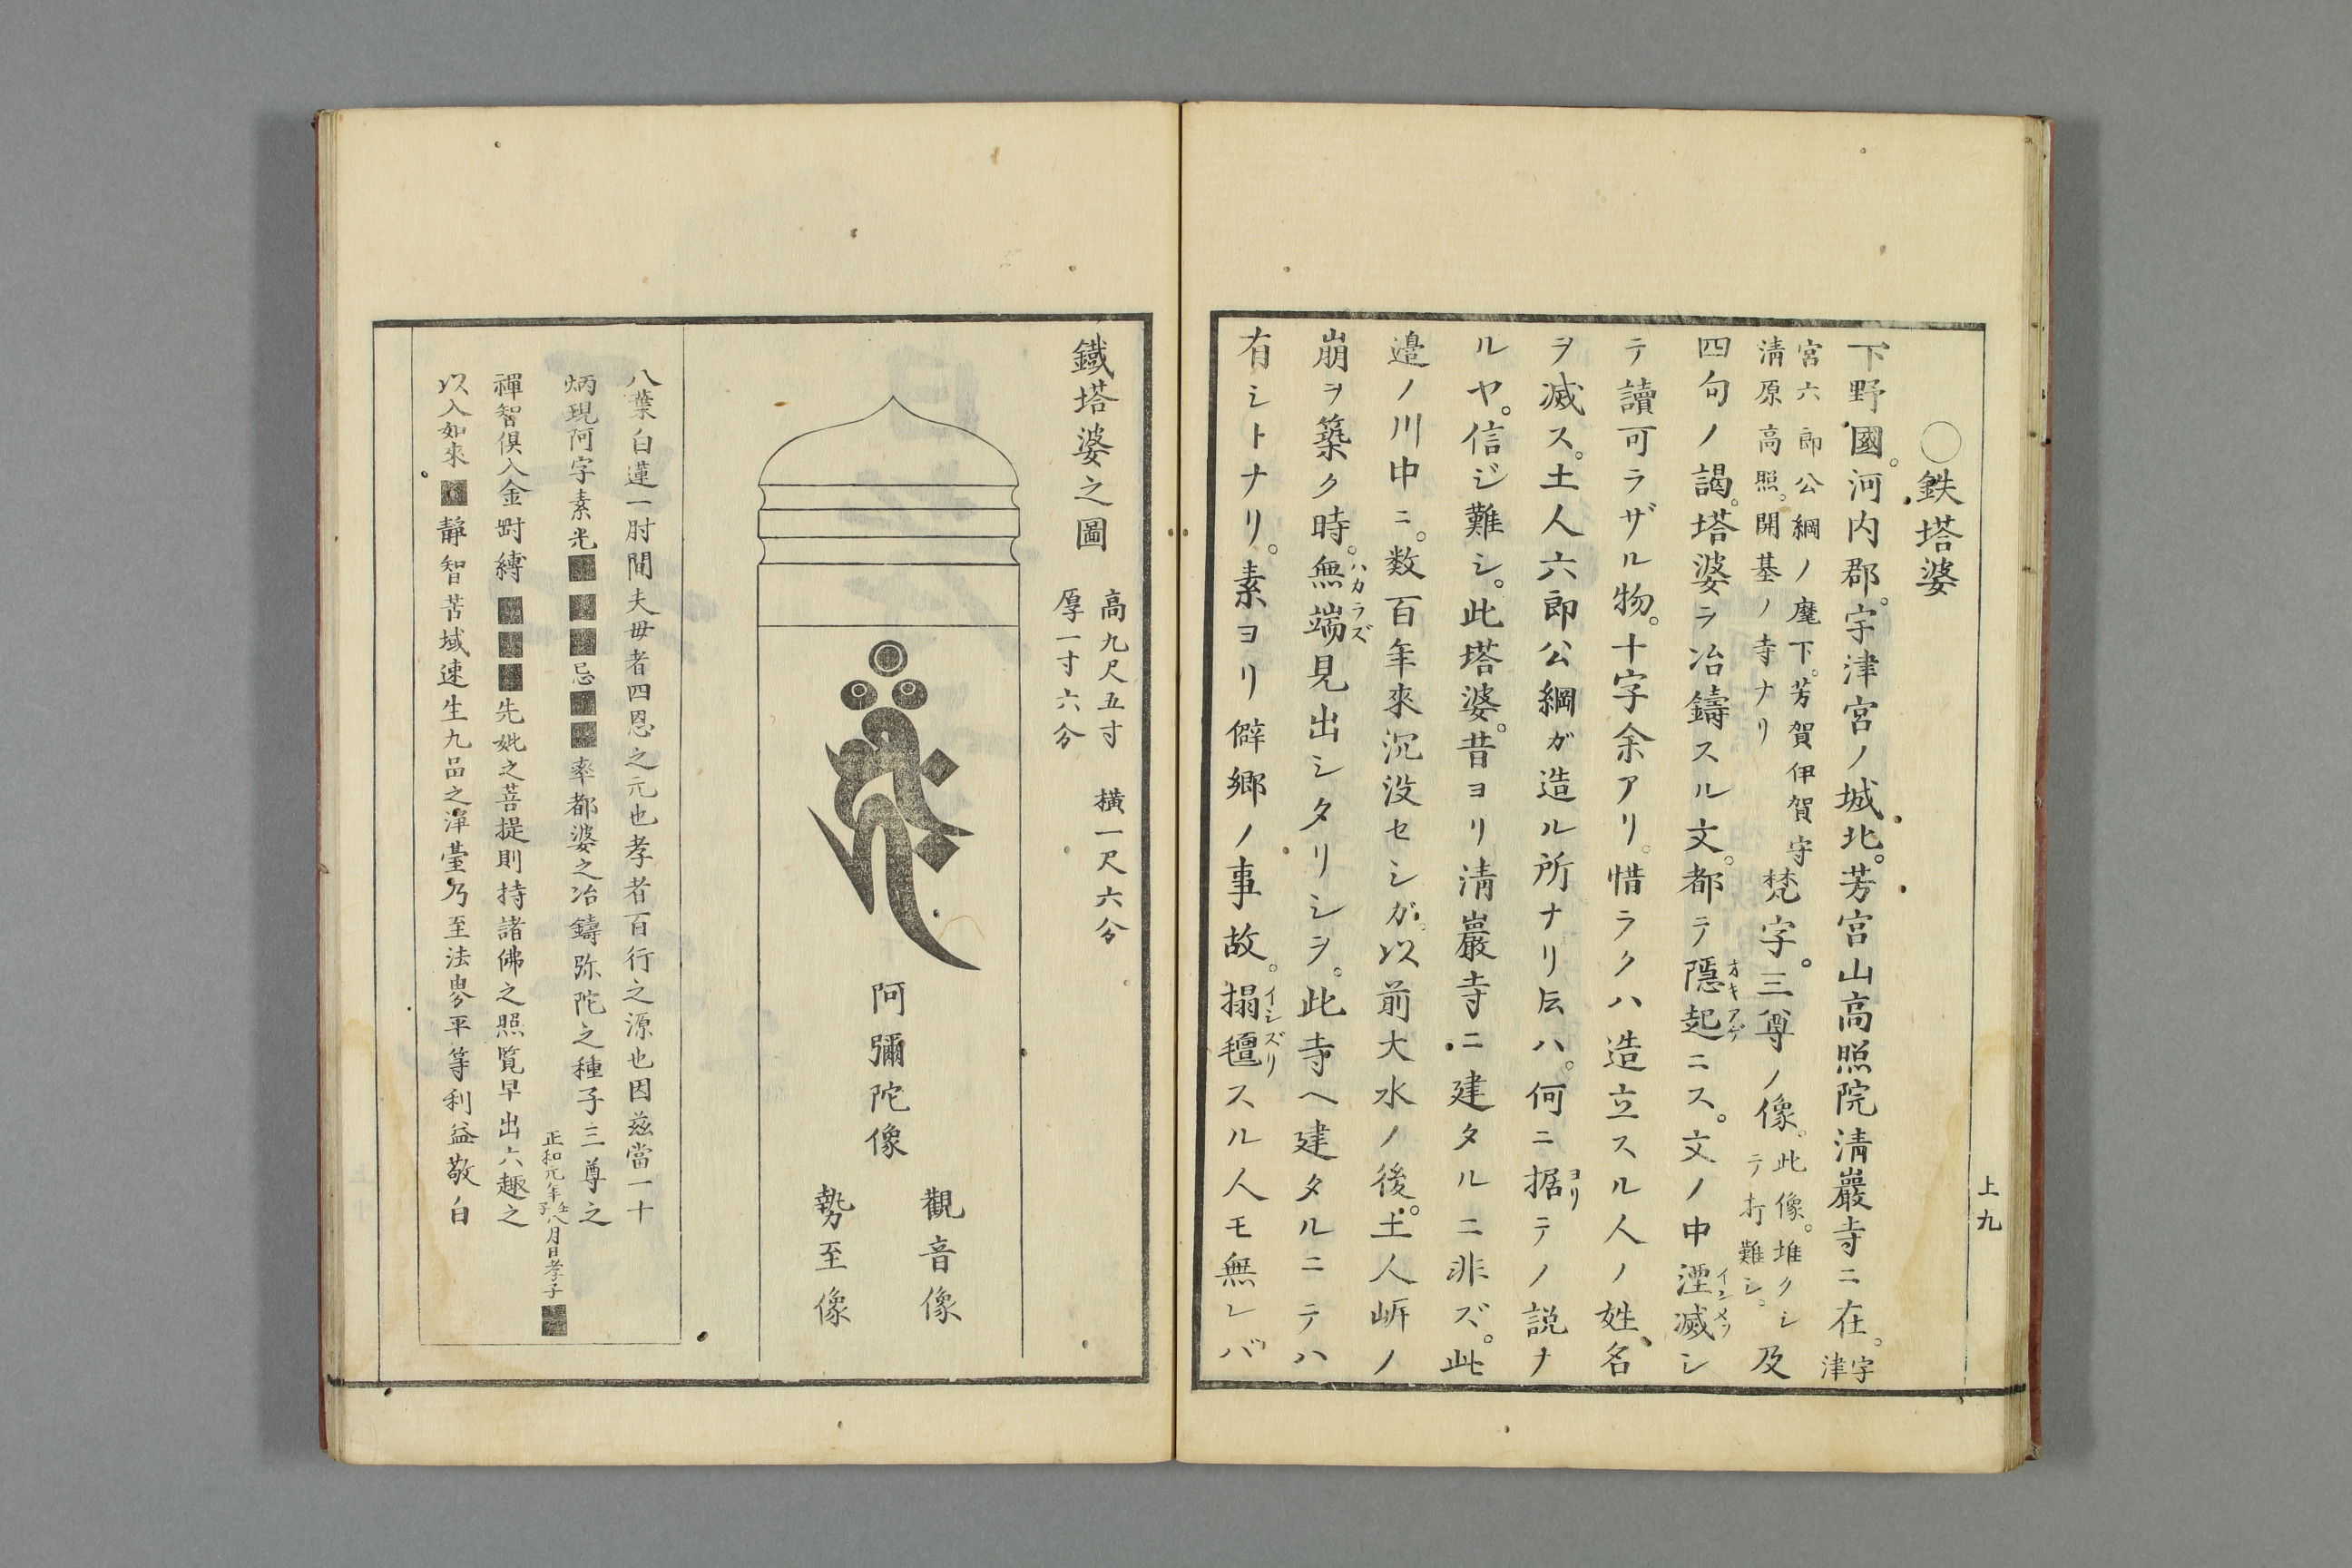 上九
○鉄塔婆
下野國。河内郡。宇津宮ノ城北。芳宮山高照院清巖寺ニ在。宇津
宮六郎公綱ノ麾下。芳賀伊賀守
清原高照。開基ノ寺ナリ
梵字。三尊ノ像。此像。堆クシ
テ打難シ。
及
四句ノ謁。塔婆ヲ冶鑄スル文。都テ隱起ニス。文ノ中湮滅シ
オキアゲ
インメツ
テ讀可ラザル物。十字余アリ。惜ラクハ造立スル人ノ姓名
ヲ滅ス。土人六郎公綱ガ造ル所ナリ㕝ハ。何ニ据テノ説ナ
ヨリ
ルヤ。信ジ難シ。此塔婆。昔ヨリ清巖寺ニ建タルニ非ズ。此
邉ノ川中ニ。数百年來沉没セシガ。以前大水ノ後。土人㟁ノ
崩ヲ築ク時。無端見出シタリシヲ。此寺ヘ建タルニテハ
ハカラズ
有シトナリ。素ヨリ僻郷ノ事故。搨氊スル人モ無レバ
イシズリ
鐵塔婆之圖
高九尺五寸 横一尺六分
厚一寸六分
阿彌陀像
觀音像
勢至像
八葉白蓮一肘間夫毋者四恩之元也孝者百行之源也因兹當一十
炳現阿字素光■■■忌■■率都婆之冶鑄弥陀之種子三尊之
禪智俱入金剛縛■■■先妣之菩提則持諸佛之照覧早出六趣之
以入如來■静智苦域速生九品之浄臺乃至法界平等利益敬白
正和元年壬子八月日孝子■